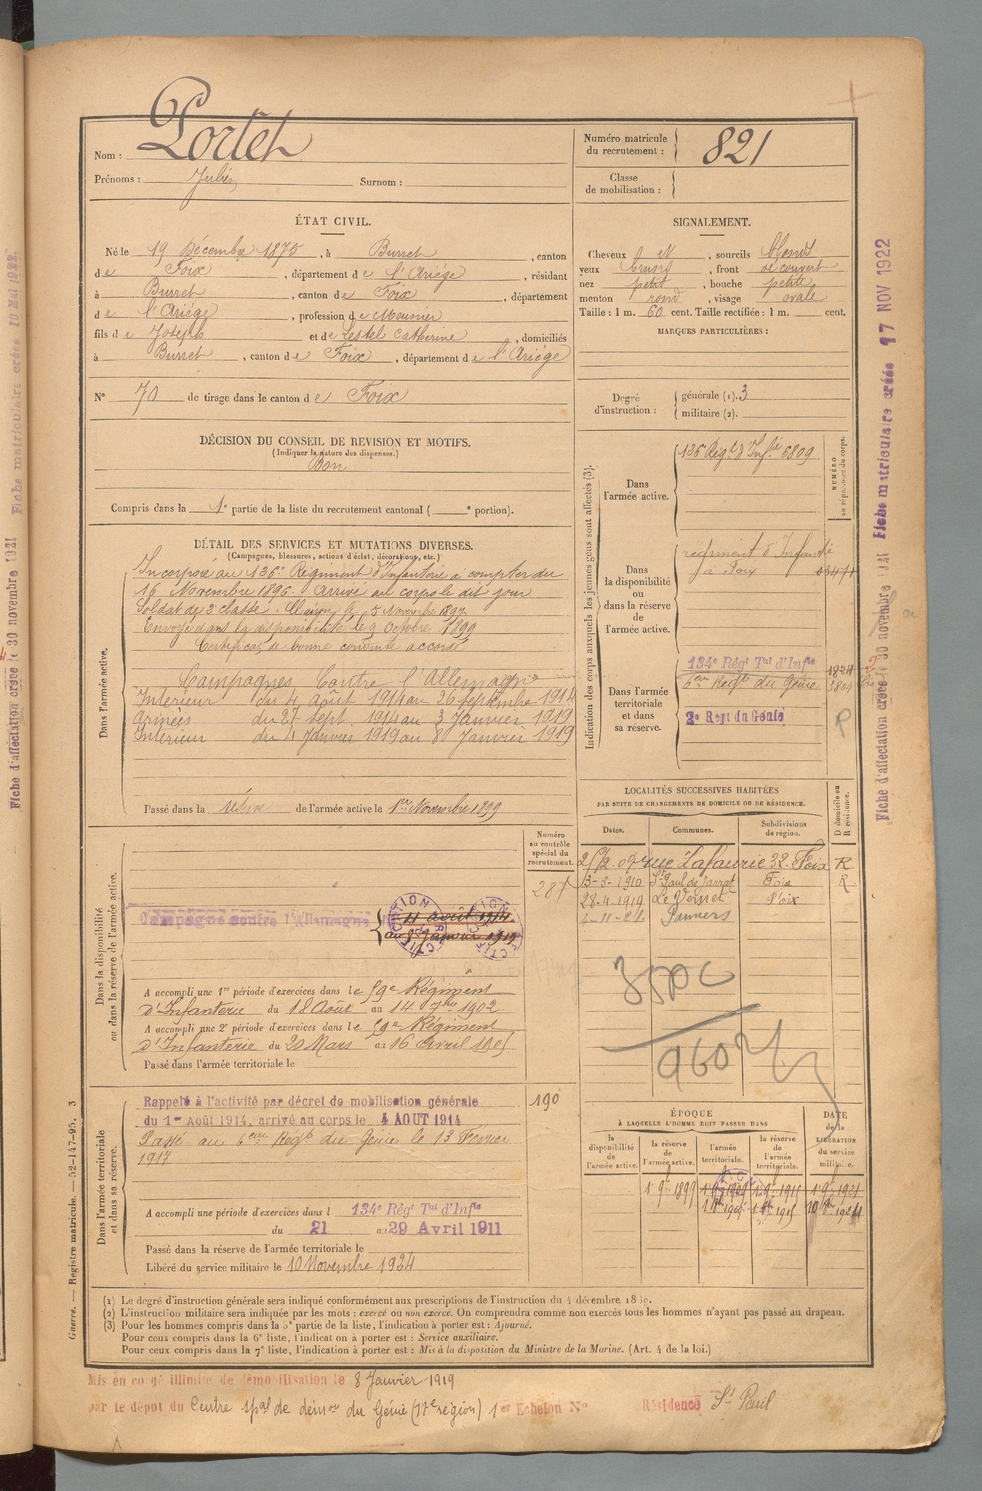 Nom : Portet
Prénoms : Julien Surnom :
Numéro matricule du recrutement : 821
Classe de mobilisation :
ÉTAT CIVIL.
Né le 19 Décembre 1875, à Burret, canton
de Foix, département de l'Ariége, résidant
à Burret, canton de Foix, département
de l'Ariége, profession de Meunier
fils de Joseph et de Lestel Catherine, domiciliés
à Burret, canton de Foix, département de l'Ariége
N° 70 de tirage dans le canton de Foix
SIGNALEMENT.
Cheveux et sourcils blonds
yeux front découvert
nez petit, bouche petite
menton rond, visage ovale
Taille : 1 m. 60 cent. Taille rectifiée : 1 m. cent.
MARQUES PARTICULIÈRES :
Degré d'instruction : générale (1). 3
militaire (2).
DÉCISION DU CONSEIL DE REVISION ET MOTIFS.
(Indiquer la nature des dispenses.)
Bon
Compris dans la 1e partie de la liste du recrutement cantonal ( e portion).
DÉTAIL DES SERVICES ET MUTATIONS DIVERSES.
(Campagnes, blessures, actions d'éclat, décorations, etc.)
Dans l'armée active.
Incorporé au 136e Régiment d'Infanterie à compter du
16 Novembre 1896. Arrivé au corps le dit jour
Soldat de 2e classe. le 5 Novembre 1897
Envoyé dans la disponibilité le 9 Octobre 1899
Certificat de bonne conduite accordé
Campagnes Contre l'Allemagne
Intérieur du 4 Août 1914 au 26 septembre 1914
Armées du 27 sept. 1914 au 3 Janvier 1919
Intérieur du 4 Janvier 1919 au 8 Janvier 1919
Passé dans la réserve de l'armée active le 1er Novembre 1899
Indication des corps auxquels les jeunes gens sont affectés (3).
NUMÉRO au répertoire du corps.
Dans l'armée active.
136 Régt d'Infie 6809
Dans la disponibilité ou dans la réserve de l'armée active.
régiment d'Infanté
à Foix
Dans l'armée territoriale et dans sa réserve.
134e Régt Tal d'Infie 1824
Regt du Génie
2e Regt du Génie
LOCALITÉS SUCCESSIVES HABITÉES
PAR SUITE DE CHANGEMENTS DE DOMICILE OU DE RÉSIDENCE.
Dates. Communes. Subdivisions de région. D domicile ou R résidence.
rue Lafaurie 32. Foix R
13-8-1910 St Paul de Jarrat Foix R
28-4-1919 Le Vernet Foix
Pamiers
3500
960
Numéro au contrôle spécial du recrutement.
287
Dans la disponibilité ou dans la réserve de l'armée active.
Campagne contre l'Allemagne
11 août 1914
au 8 Janvier 1919
RECTIFICATION
A accompli une 1re période d'exercices dans le 59e Régiment
d'Infanterie du 18 Août au 14 7bre 1902
A accompli une 2e période d'exercices dans le 59e Régiment
d'Infanterie du 20 Mars au 16 Avril 1905
Passé dans l'armée territoriale le
Dans l'armée territoriale et dans sa réserve.
190
Rappelé à l'activité par décret de mobilisation générale
du 1er Août 1914, arrivé au corps le 4 AOUT 1914
Passé au Regt du Génie le 13 Février
1917
A accompli une période d'exercices dans l 134e Régt Tal d'Infie
du 21 au 29 Avril 1911
Passé dans la réserve de l'armée territoriale le
Libéré du service militaire le 10 Novembre 1924
ÉPOQUE
À LAQUELLE L'HOMME DOIT PASSER DANS
la disponibilité de l'armée active. la réserve de l'armée active. l'armée territoriale. la réserve de l'armée territoriale. DATE de la LIBÉRATION du service militaire.
1 9bre 1899
(1) Le degré d'instruction générale sera indiqué conformément aux prescriptions de l'instruction du 4 décembre
(2) L'instruction militaire sera indiquée par les mots : exercé ou non exercé. On comprendra comme non exercés tous les hommes n'ayant pas passé au drapeau.
(3) Pour les hommes compris dans la 5e partie de la liste, l'indication à porter est : Ajourné.
Pour ceux compris dans la 6e liste, l'indication à porter est : Service auxiliaire.
Pour ceux compris dans la 7e liste, l'indication à porter est : Mis à la disposition du Ministre de la Marine. (Art. 4 de la loi.)
Mis en congé illimité de démobilisation le 8 Janvier 1919
par le dépôt du Centre spal de démon du Génie (17e région) 1er Echelon N° Résidence St Paul
Guerre. — Registre matricule. — 52-147-95. 3
Fiche d'affectation créée le 30 novembre 1921 Fiche matriculaire créée 17 NOV 1922
Fiche d'affectation créée le 30 novembre 1921 Fiche matriculaire créée 10 Mai 1922